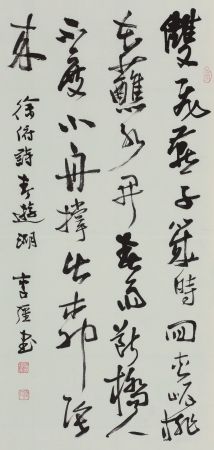 雙飛燕子幾時回夾岸桃
花蘸水開春雨斷橋人
不度小舟撐出柳陰
來
徐俯詩春遊湖 李 書